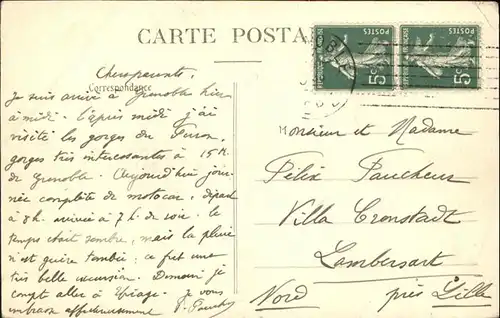 CARTE POSTA
Correspondance
Chers parents,
Je suis arrivé à Grenoble hier
à midi. L'après midi j'ai
visité les gorges du Furon,
gorges très intéressantes à 15 K.
de Grenoble. Aujourd'hui jour-
née complète de motocar, départ
à 8h. arrivée à 7 h. de soir. le
temps était sombre, mais la pluie
n'est guère tombée; ce fut une
très belle excursion. Demain je
compt aller à Uriage. Je vous
embrasse affectueusement
POSTES
5c
POSTES
5c
Monsieur et Madame
Félix Faucheur
Villa Cronstadt
Lambersart
près Lille
Nord